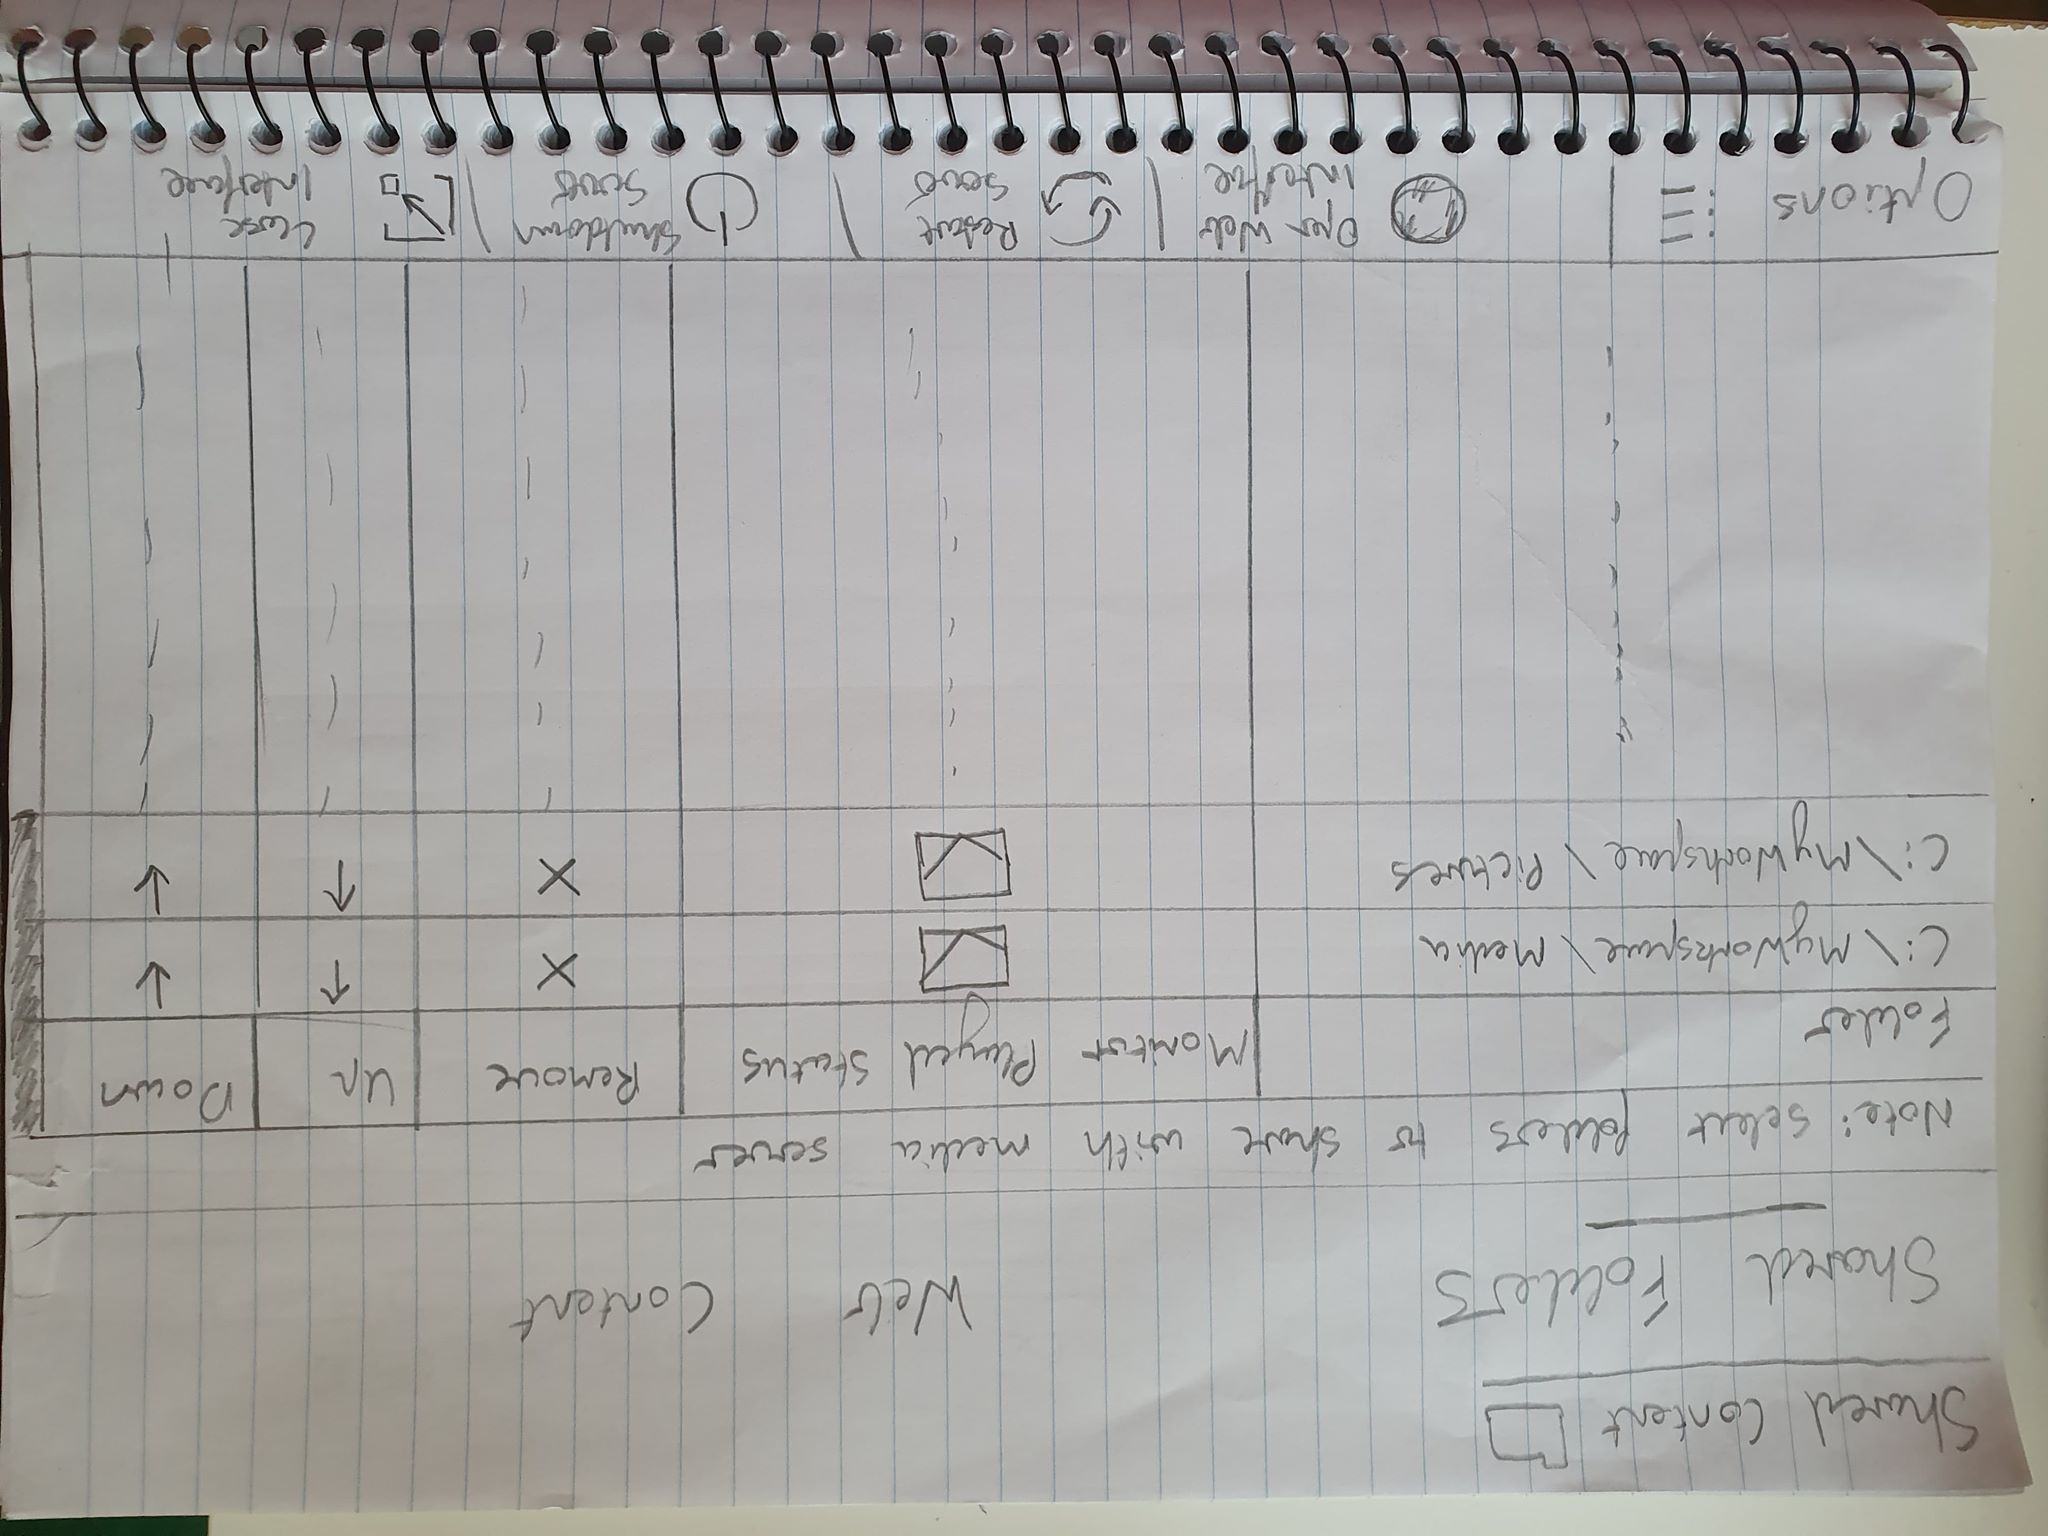 Shared Content
Shared Folders Web Content
Note: select folders to share with media server
Folder Monitor Played Status Remove Up Down
C:\MyWorkspace\Media
C:\MyWorkspace\Pictures
Options
Open Web
Interface
Restart
Server
Shutdown
Server
Close
Interface